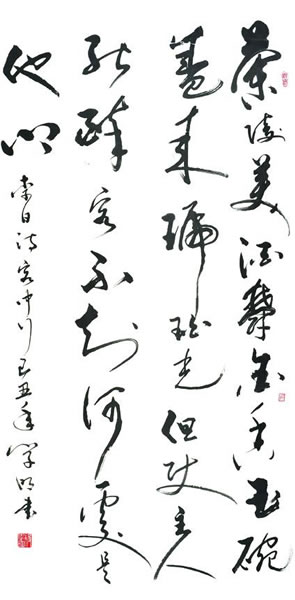 蘭陵美酒鬱金香玉碗
盛来琥珀光但使主人
能醉客不知何處是
他鄉
李白詩客中行己丑年學明書